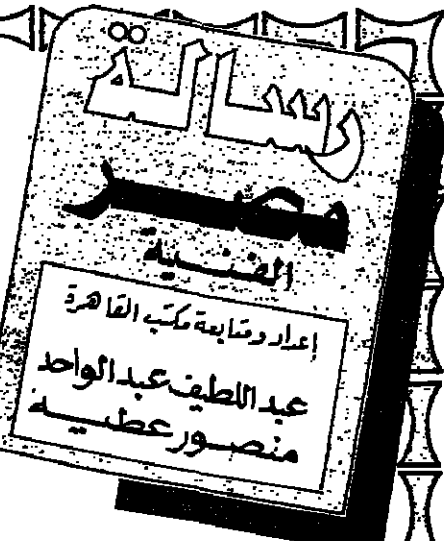 رسالة
مصر
الفنية
إعداد ومتابعة مكتب القاهرة
عبد اللطيف عبد الواحد
منصور عطية